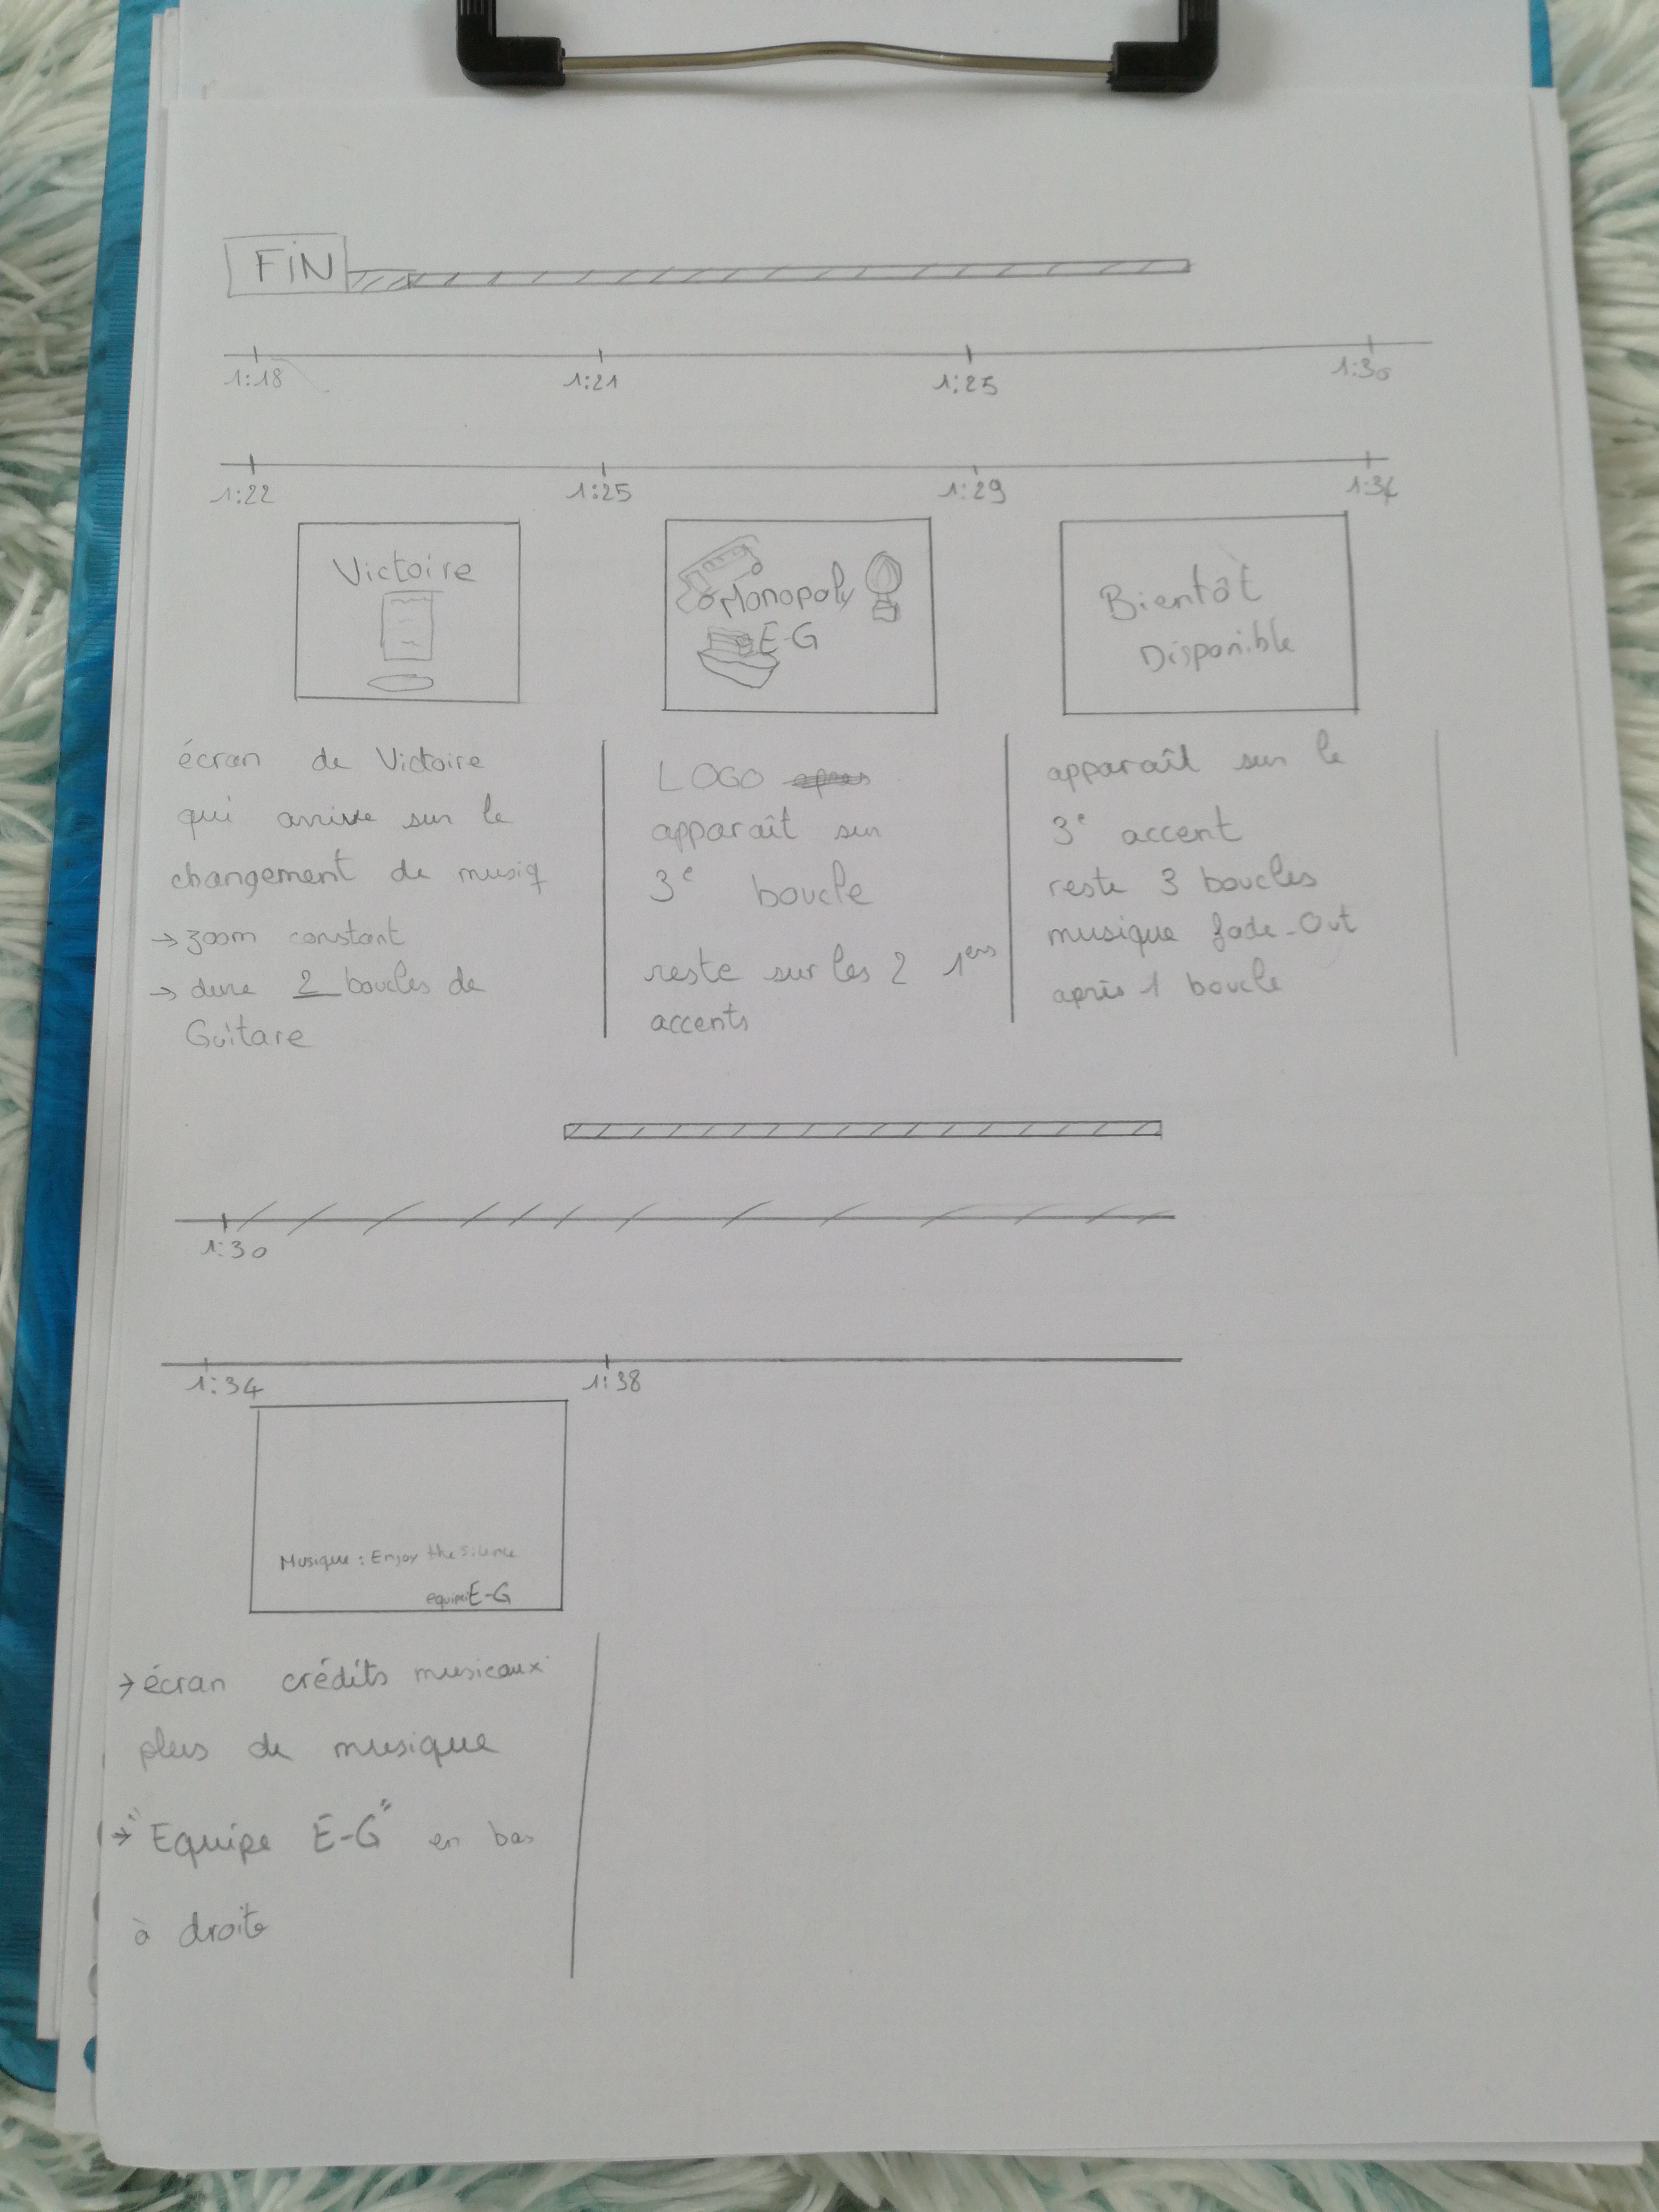 FiN
1:18 1:21 1:25 1:30
1:22 1:25 1:29 1:34
Victoire
Monopoly
E-G
Bientôt
Disponible
écran de Victoire
qui arrive sur le
changement de musiq
→ zoom constant
→ dure 2 boucles de
Guitare
LOGO
apparaît sur
3e boucle
reste sur les 2 1ers
accents
apparaît sur le
3e accent
reste 3 boucles
musique fade-Out
après 1 boucle
1:30
1:34 1:38
Musique : Enjoy the Silence
E-G
→ écran crédits musicaux
plus de musique
→ "Equipe E-G" en bas
à droite